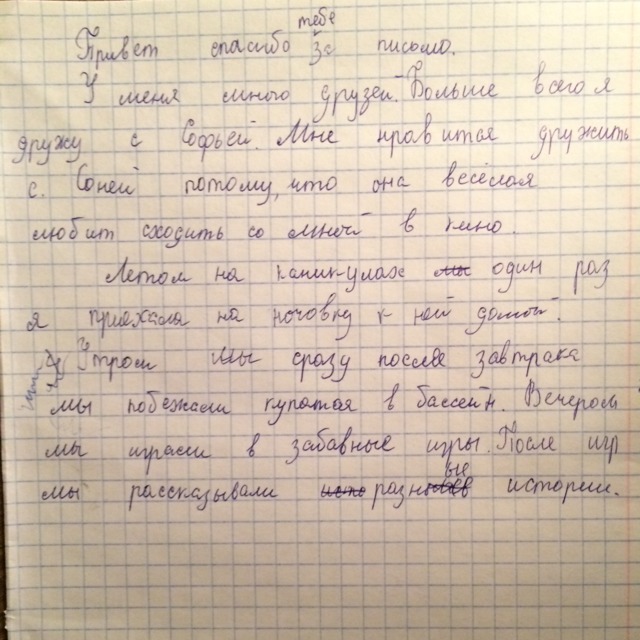 Привет спасибо тебе за письмо.
У меня много друзей. Больше всего я
дружу с Софьей. Мне нравится дружить
с. Соней потому, что она весёлая
любит сходить со мной в кино.
Летом на каникулах мы один раз
я приехала на ночовку к ней домой.
Утром мы сразу после завтрака
мы побежали купатся в бассейн. Вечером
мы играли в забавные игры. После игр
мы рассказывали разные истории.